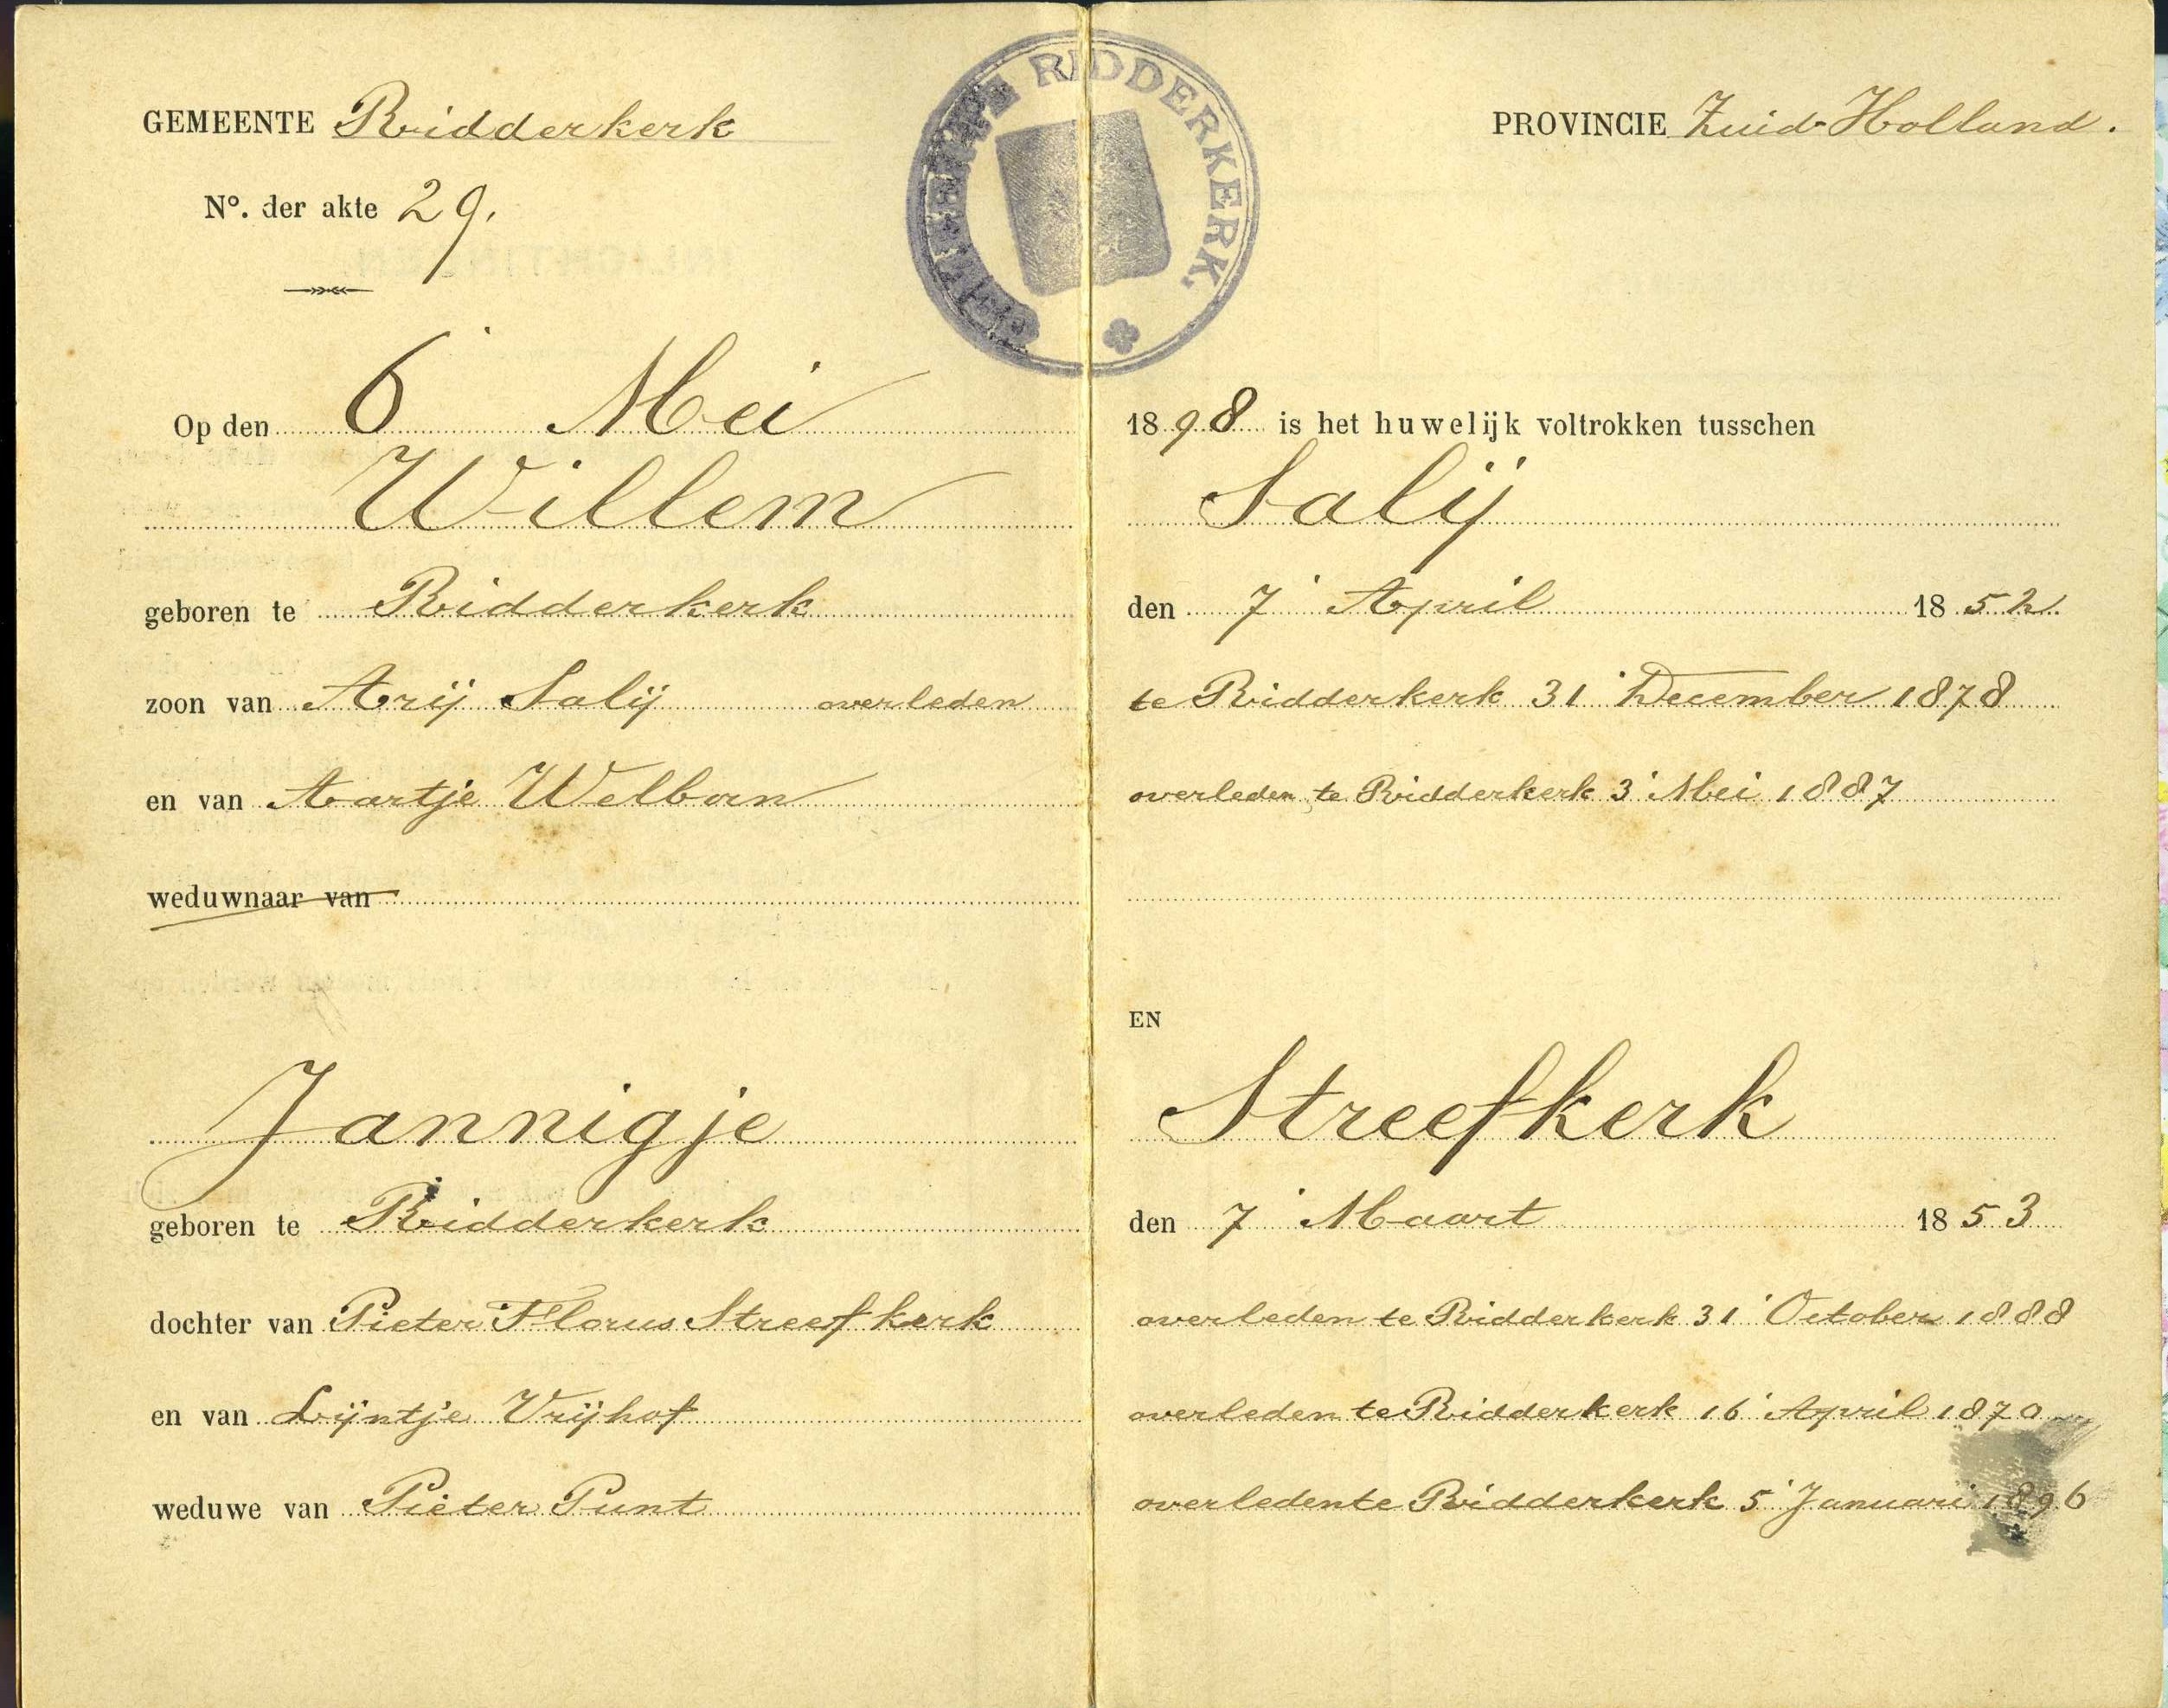 GEMEENTE Ridderkerk
PROVINCIE Zuid-Holland.
GEMEENTE RIDDERKERK.
No. der akte 29.
Op den 6 Mei 1898 is het huwelijk voltrokken tusschen
Willem Salij
geboren te Ridderkerk den 7 April 1852
zoon van Arij Salij overleden te Ridderkerk 31 December 1878
en van Aartje Welboren overleden te Ridderkerk 3 Mei 1887
weduwnaar van
EN
Jannigje Streefkerk
geboren te Ridderkerk den 7 Maart 1853
dochter van Pieter Florus Streefkerk overleden te Ridderkerk 31 October 1888
en van Lijntje Vrijhof overleden te Ridderkerk 16 April 1870
weduwe van Pieter Punt overleden te Ridderkerk 5 Januari 1896